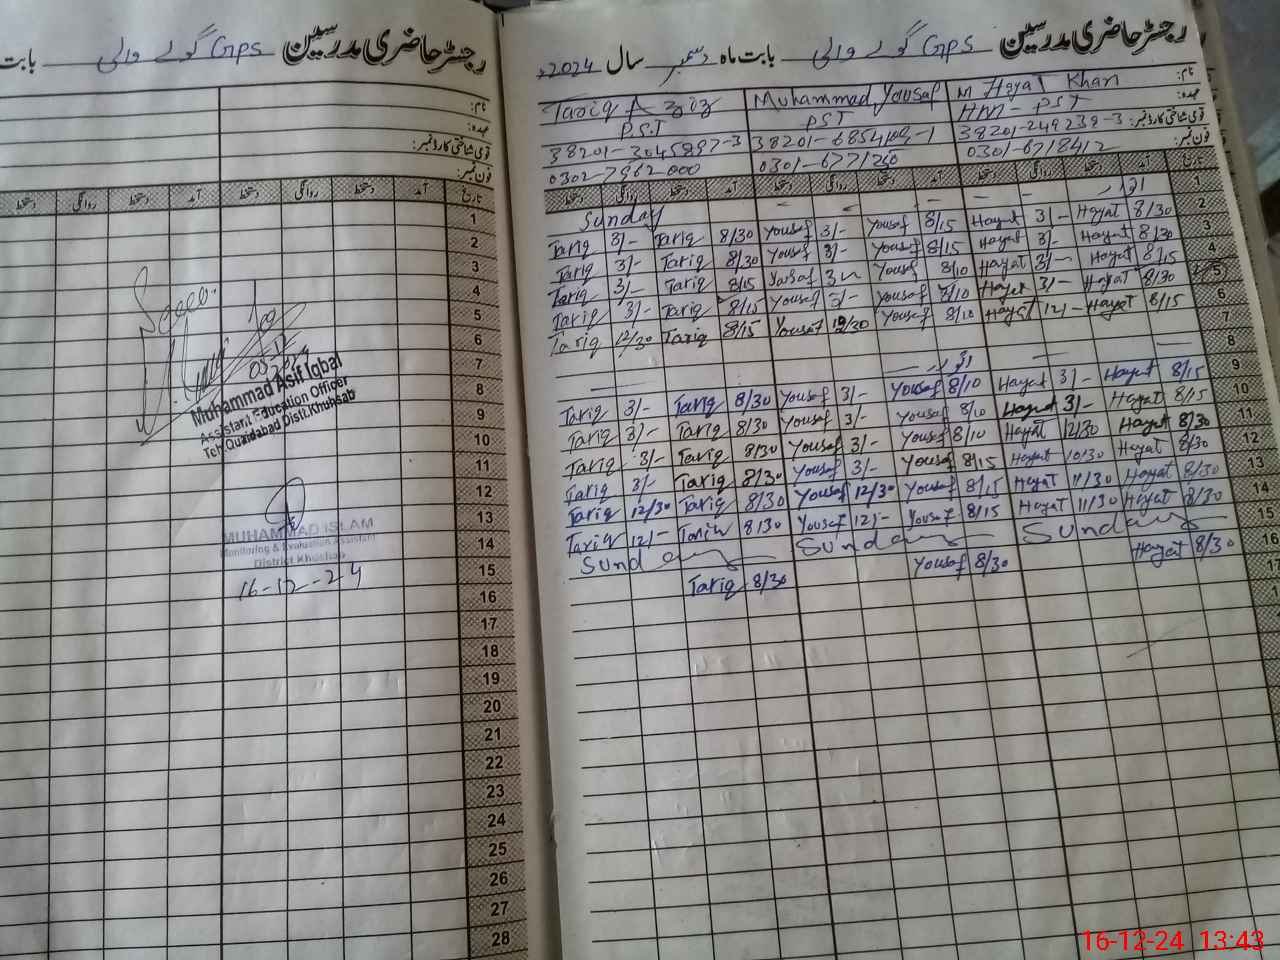 رجسٹر حاضری مدرسین GPS گولے والی بابت
نام:
عہدہ:
قومی شناختی کارڈ نمبر:
فون نمبر:
تاریخ آمد دستخط روانگی دستخط آمد دستخط روانگی دستخط
1
2
3
4
5
6
7
8
9
10
11
12
13
14
15
16
17
18
19
20
21
22
23
24
25
26
27
28
Seen
Muhammad Asif Iqbal
Assistant Education Officer
Teh:Quaidabad Distt.Khuhsab
MUHAMMAD ISLAM
Monitoring & Evaluation Assistant
District Khushab
16-12-24
رجسٹر حاضری مدرسین GPS گولے والی بابت ماہ دسمبر سال 2024ء
نام: M Hayat Khan Muhammad Yousaf Tariq Aziz
عہدہ: HM - PST PST P.S.T
قومی شناختی کارڈ نمبر: 38201-249239-3 38201-6854109-1 38201-3045897-3
فون نمبر: 0301-6718412 0301-6771260 0302-7562000
تاریخ آمد دستخط روانگی دستخط آمد دستخط روانگی دستخط آمد دستخط روانگی دستخط
1 اتوار Sunday
2 8/30 Hayat 3/- Hayat 8/15 Yousaf 3/- Yousaf 8/30 Tariq 3/- Tariq
3 8/30 Hayat 3/- Hayat 8/15 Yousaf 3/- Yousaf 8/30 Tariq 3/- Tariq
4 8/15 Hayat 3/- Hayat 8/10 Yousaf 3/- Yousaf 8/15 Tariq 3/- Tariq
5 8/30 Hayat 3/- Hayat 8/10 Yousaf 3/- Yousaf 8/15 Tariq 3/- Tariq
6 8/15 Hayat 12/- Hayat 8/10 Yousaf 12/30 Yousaf 8/15 Tariq 12/30 Tariq
7
8 اتوار
9 8/15 Hayat 3/- Hayat 8/10 Yousaf 3/- Yousaf 8/30 Tariq 3/- Tariq
10 8/15 Hayat 3/- Hayat 8/10 Yousaf 3/- Yousaf 8/30 Tariq 3/- Tariq
11 8/30 Hayat 12/30 Hayat 8/10 Yousaf 3/- Yousaf 8/30 Tariq 3/- Tariq
12 8/30 Hayat 10/30 Hayat 8/15 Yousaf 3/- Yousaf 8/30 Tariq 3/- Tariq
13 8/30 Hayat 11/30 Hayat 8/15 Yousaf 12/30 Yousaf 8/30 Tariq 12/30 Tariq
14 8/30 Hayat 11/30 Hayat 8/15 Yousaf 12/- Yousaf 8/30 Tariq 12/- Tariq
15 Sunday Sunday Sunday
16 8/30 Hayat 8/30 Yousaf 8/30 Tariq
16-12-24 13:43